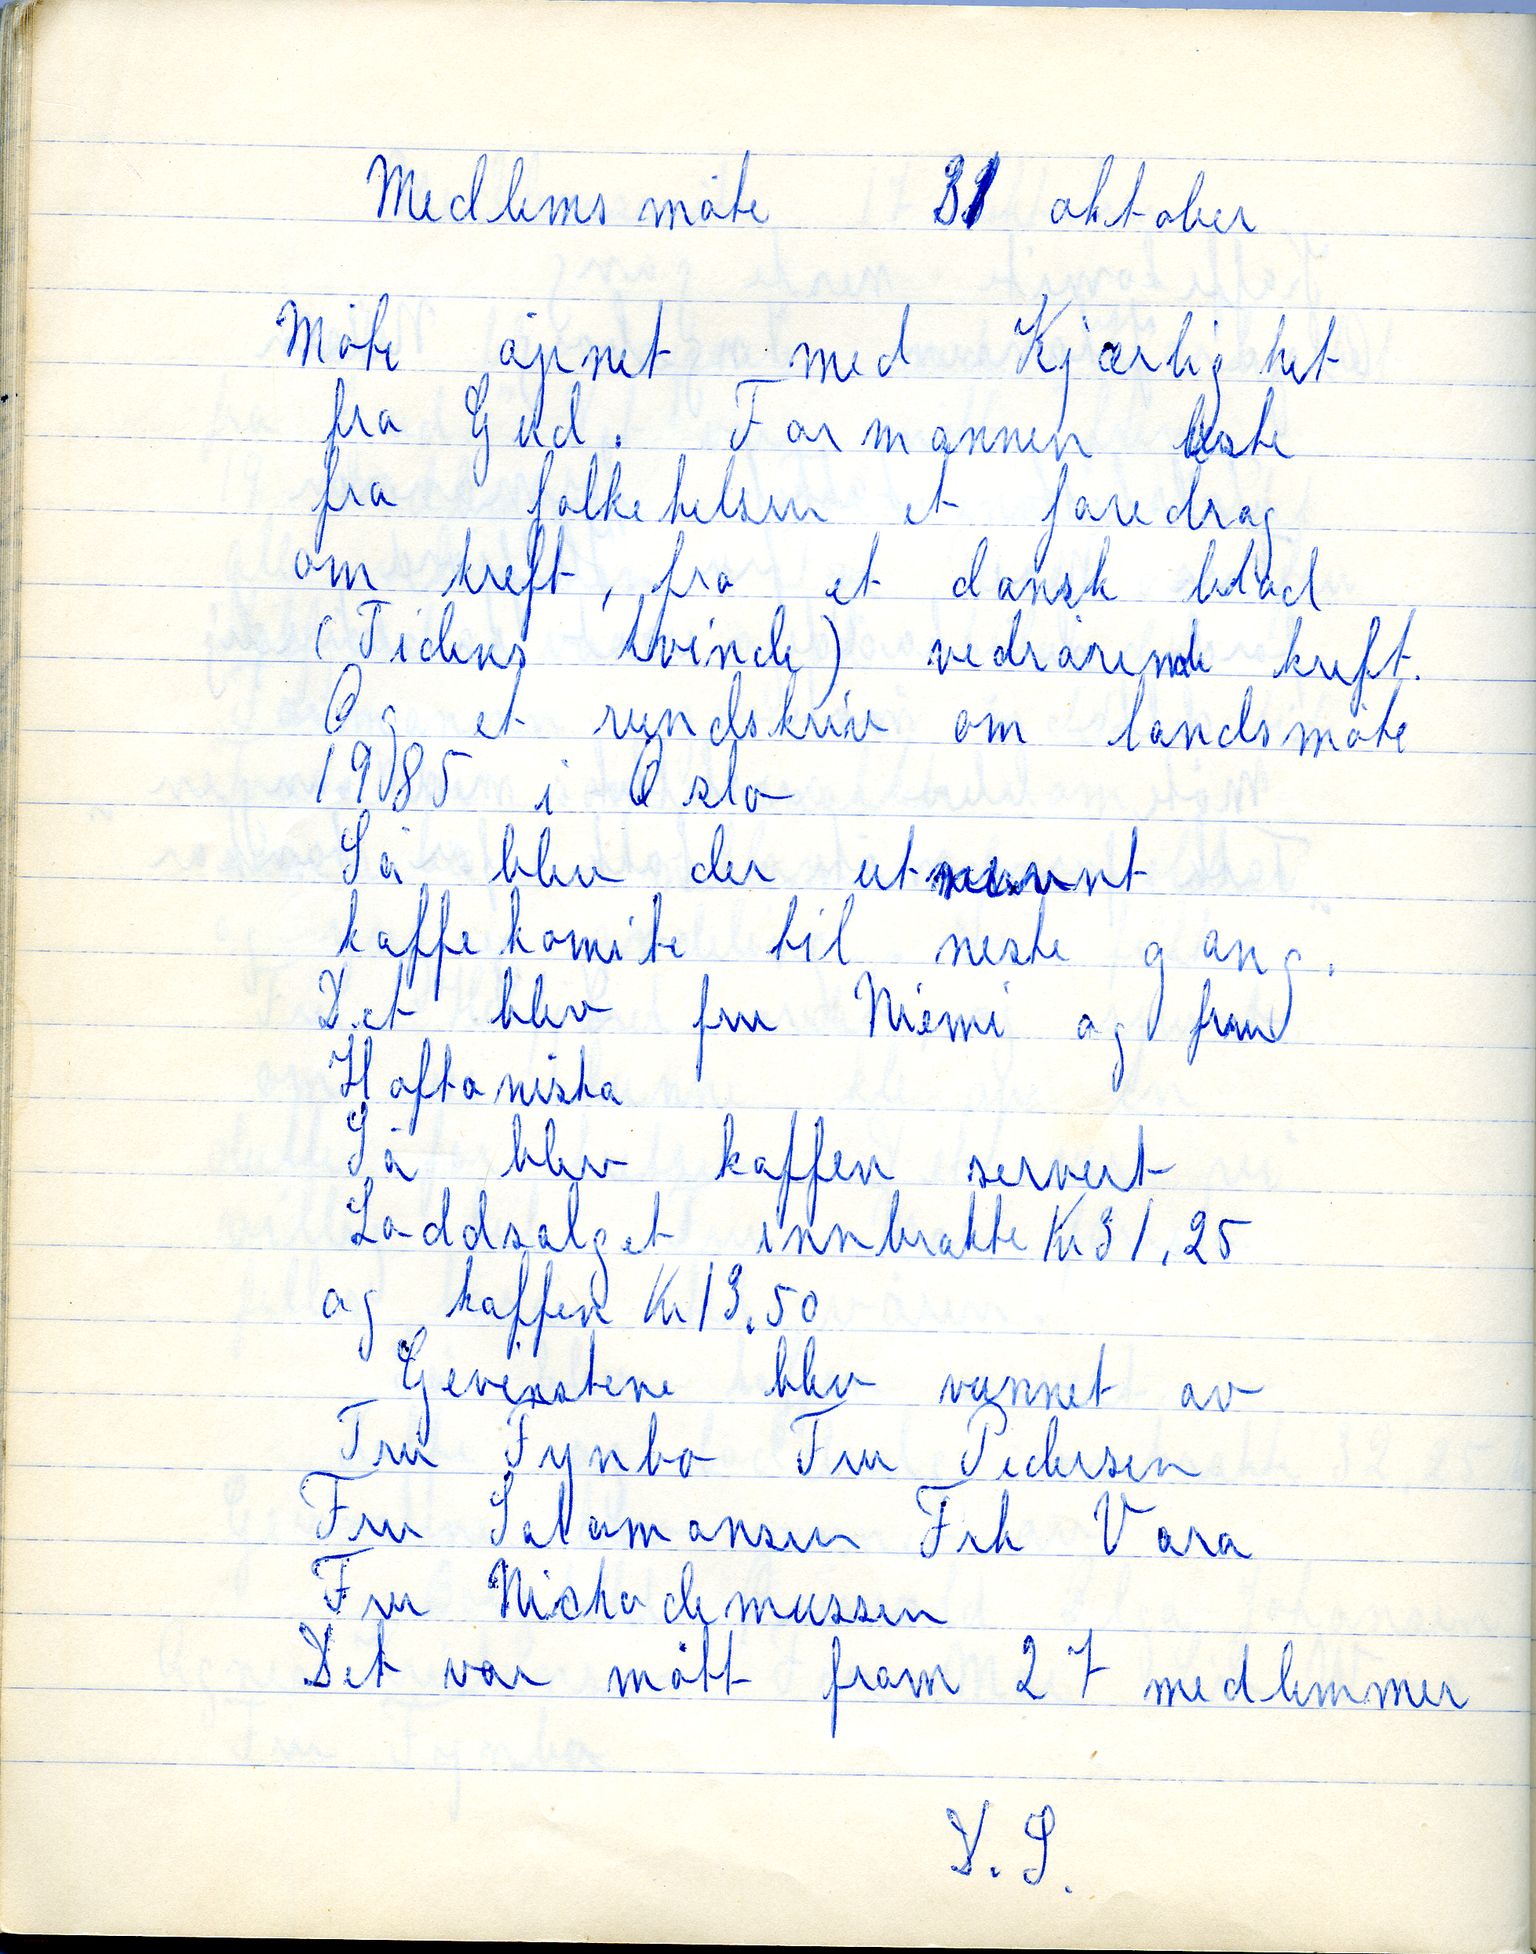 Medlems møte 31 oktober
Møte åpnet med Kjærlighet
fra Gud. Formannen leste
fra folkehelsen et foredrag
om kreft, fra et dansk blad
(Tidens kvinde) vedrørende kreft.
Og et rundskriv om landsmøte
1985 i Oslo
Så blev der utnevnt
kaffekomite til neste gang.
Det blev fru Niemi og fru
Haftonista
Så blev kaffen servert
Loddsalget innbrakte Kr 31,25
og kaffen Kr 13.50
Gevinstene blev vunnet av
Fru Fynbo Fru Pedersen
Fru Salomonsen Frk Vara
Fru Nichodemussen
Det var møtt fram 27 medlemmer
D. S.